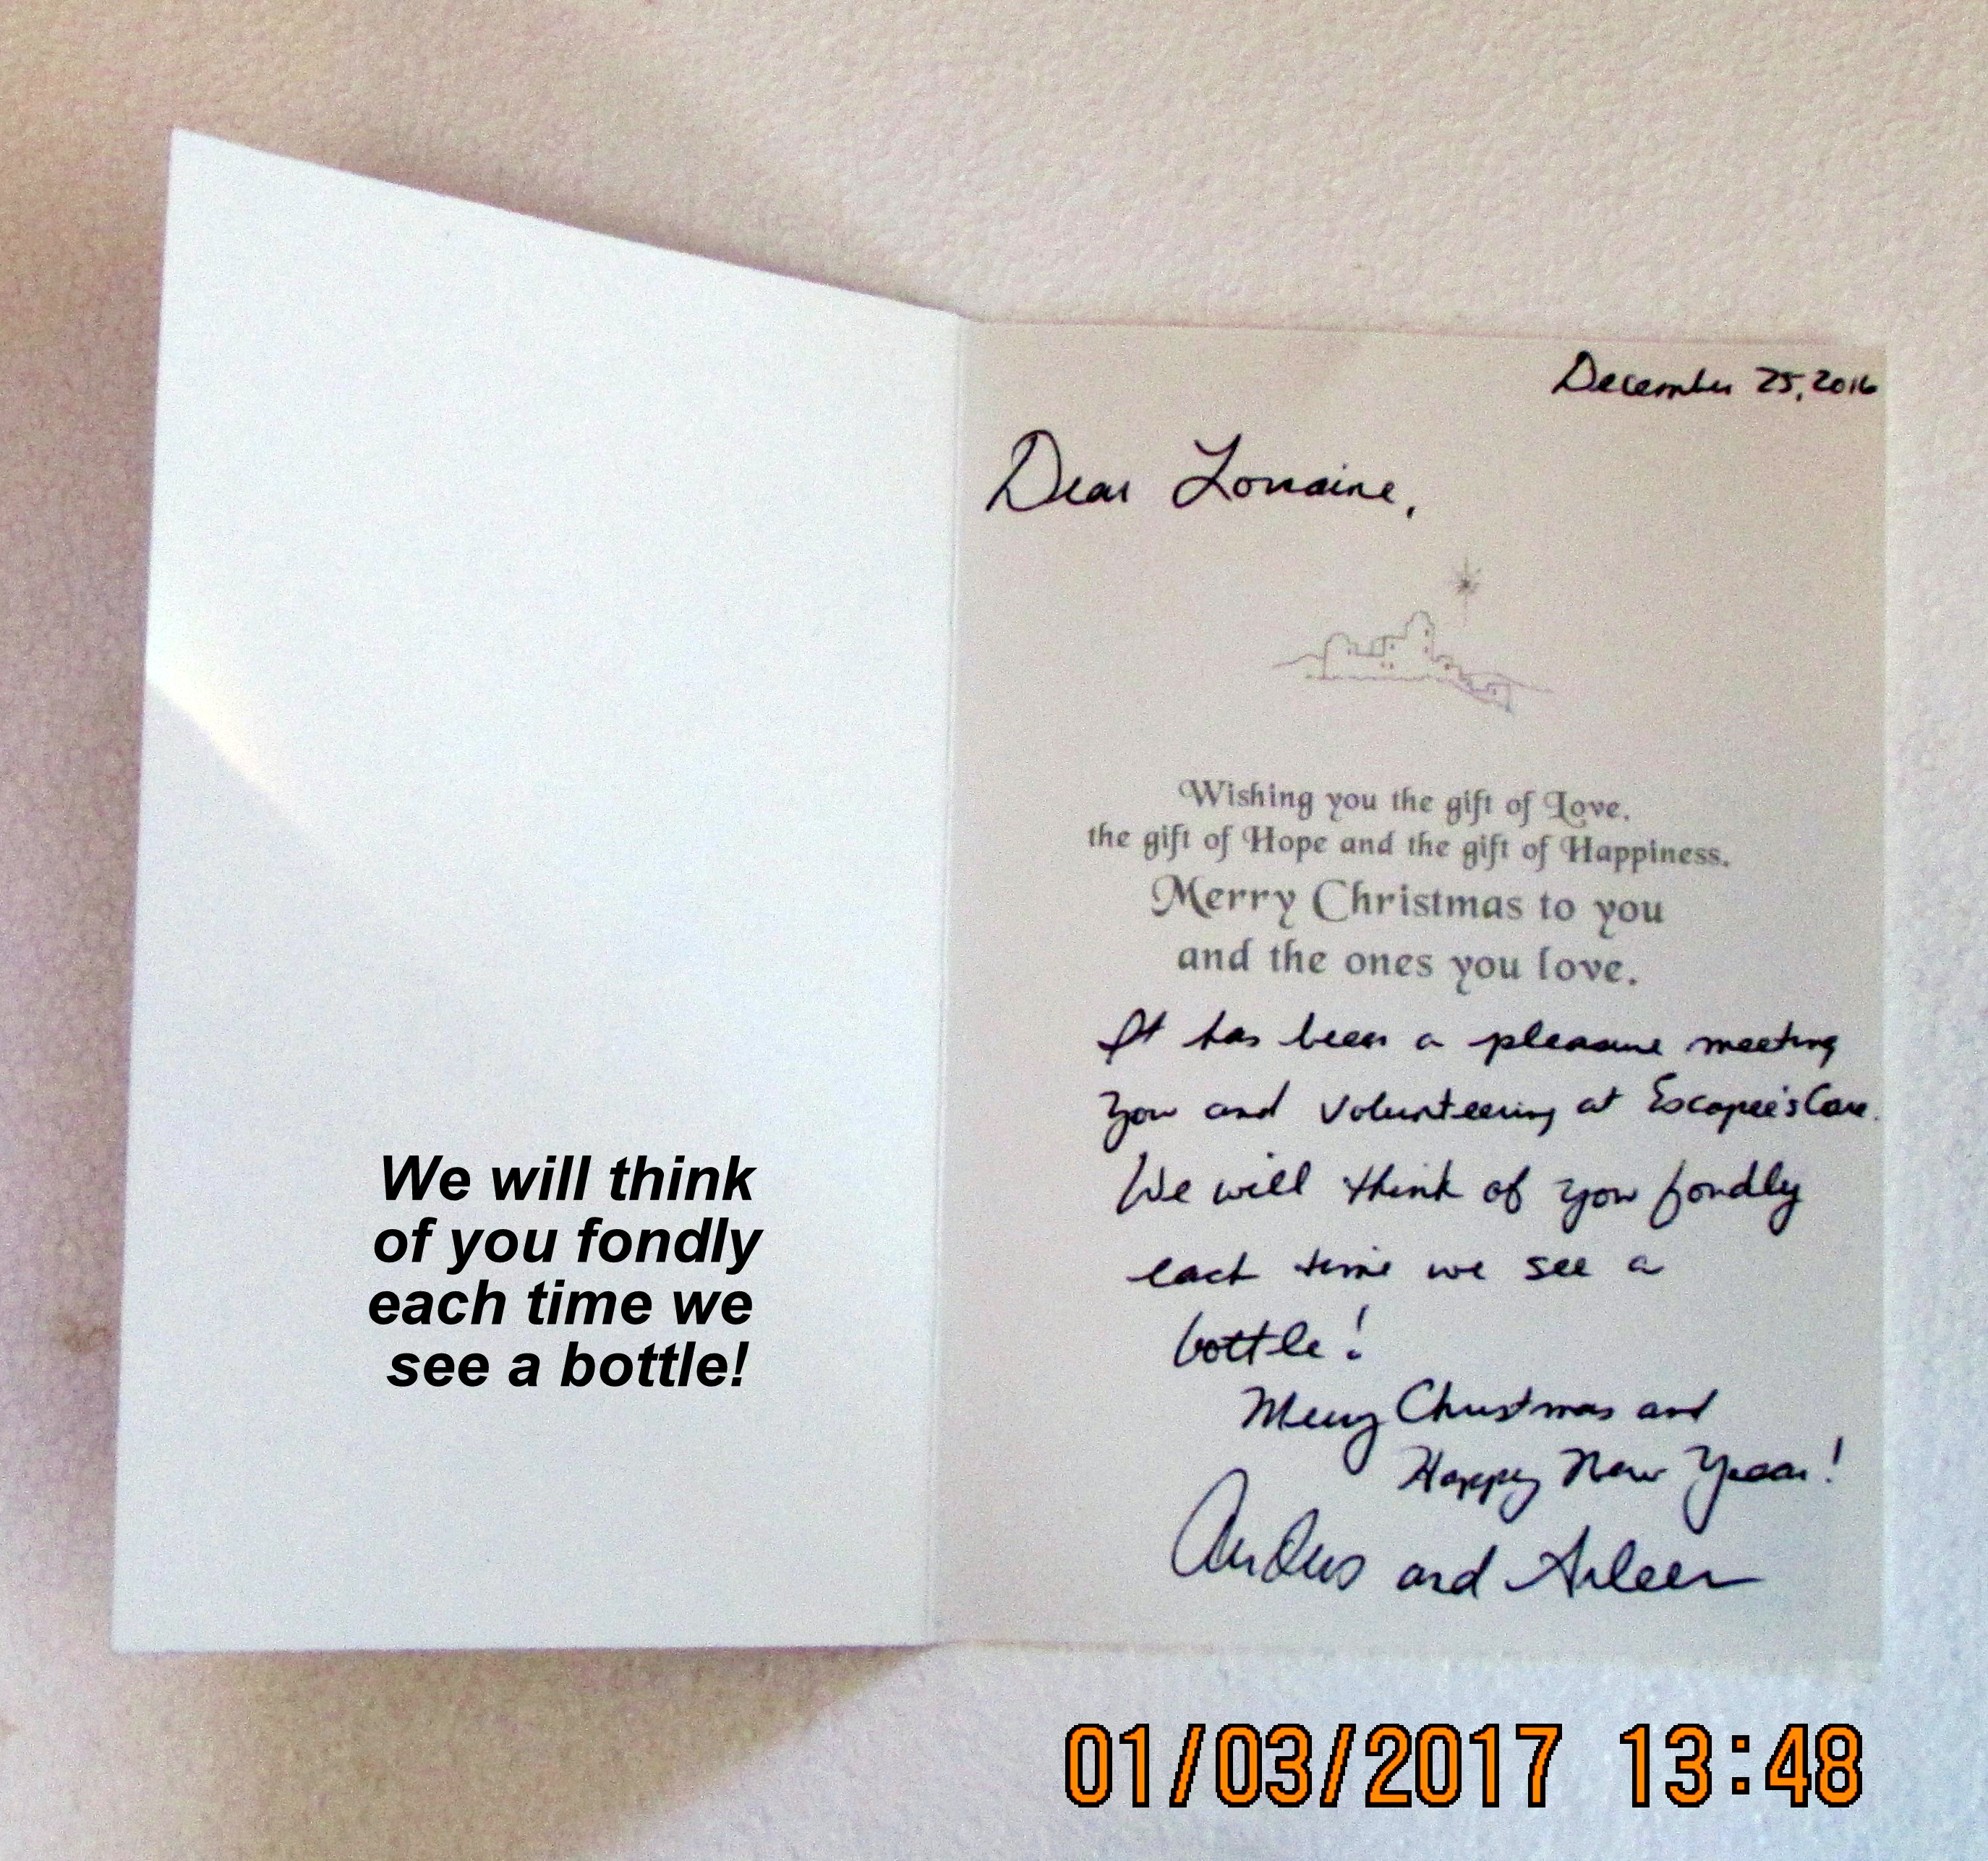 We will think
of you fondly
each time we
see a bottle!
December 25, 2016
Dear Lorraine,
Wishing you the gift of Love,
the gift of Hope and the gift of Happiness.
Merry Christmas to you
and the ones you love.
It has been a pleasure meeting
you and volunteering at Escapee's Care.
We will think of you fondly
each time we see a
bottle!
Merry Christmas and
Happy New Year!
and Arleen
01/03/2017 13:48